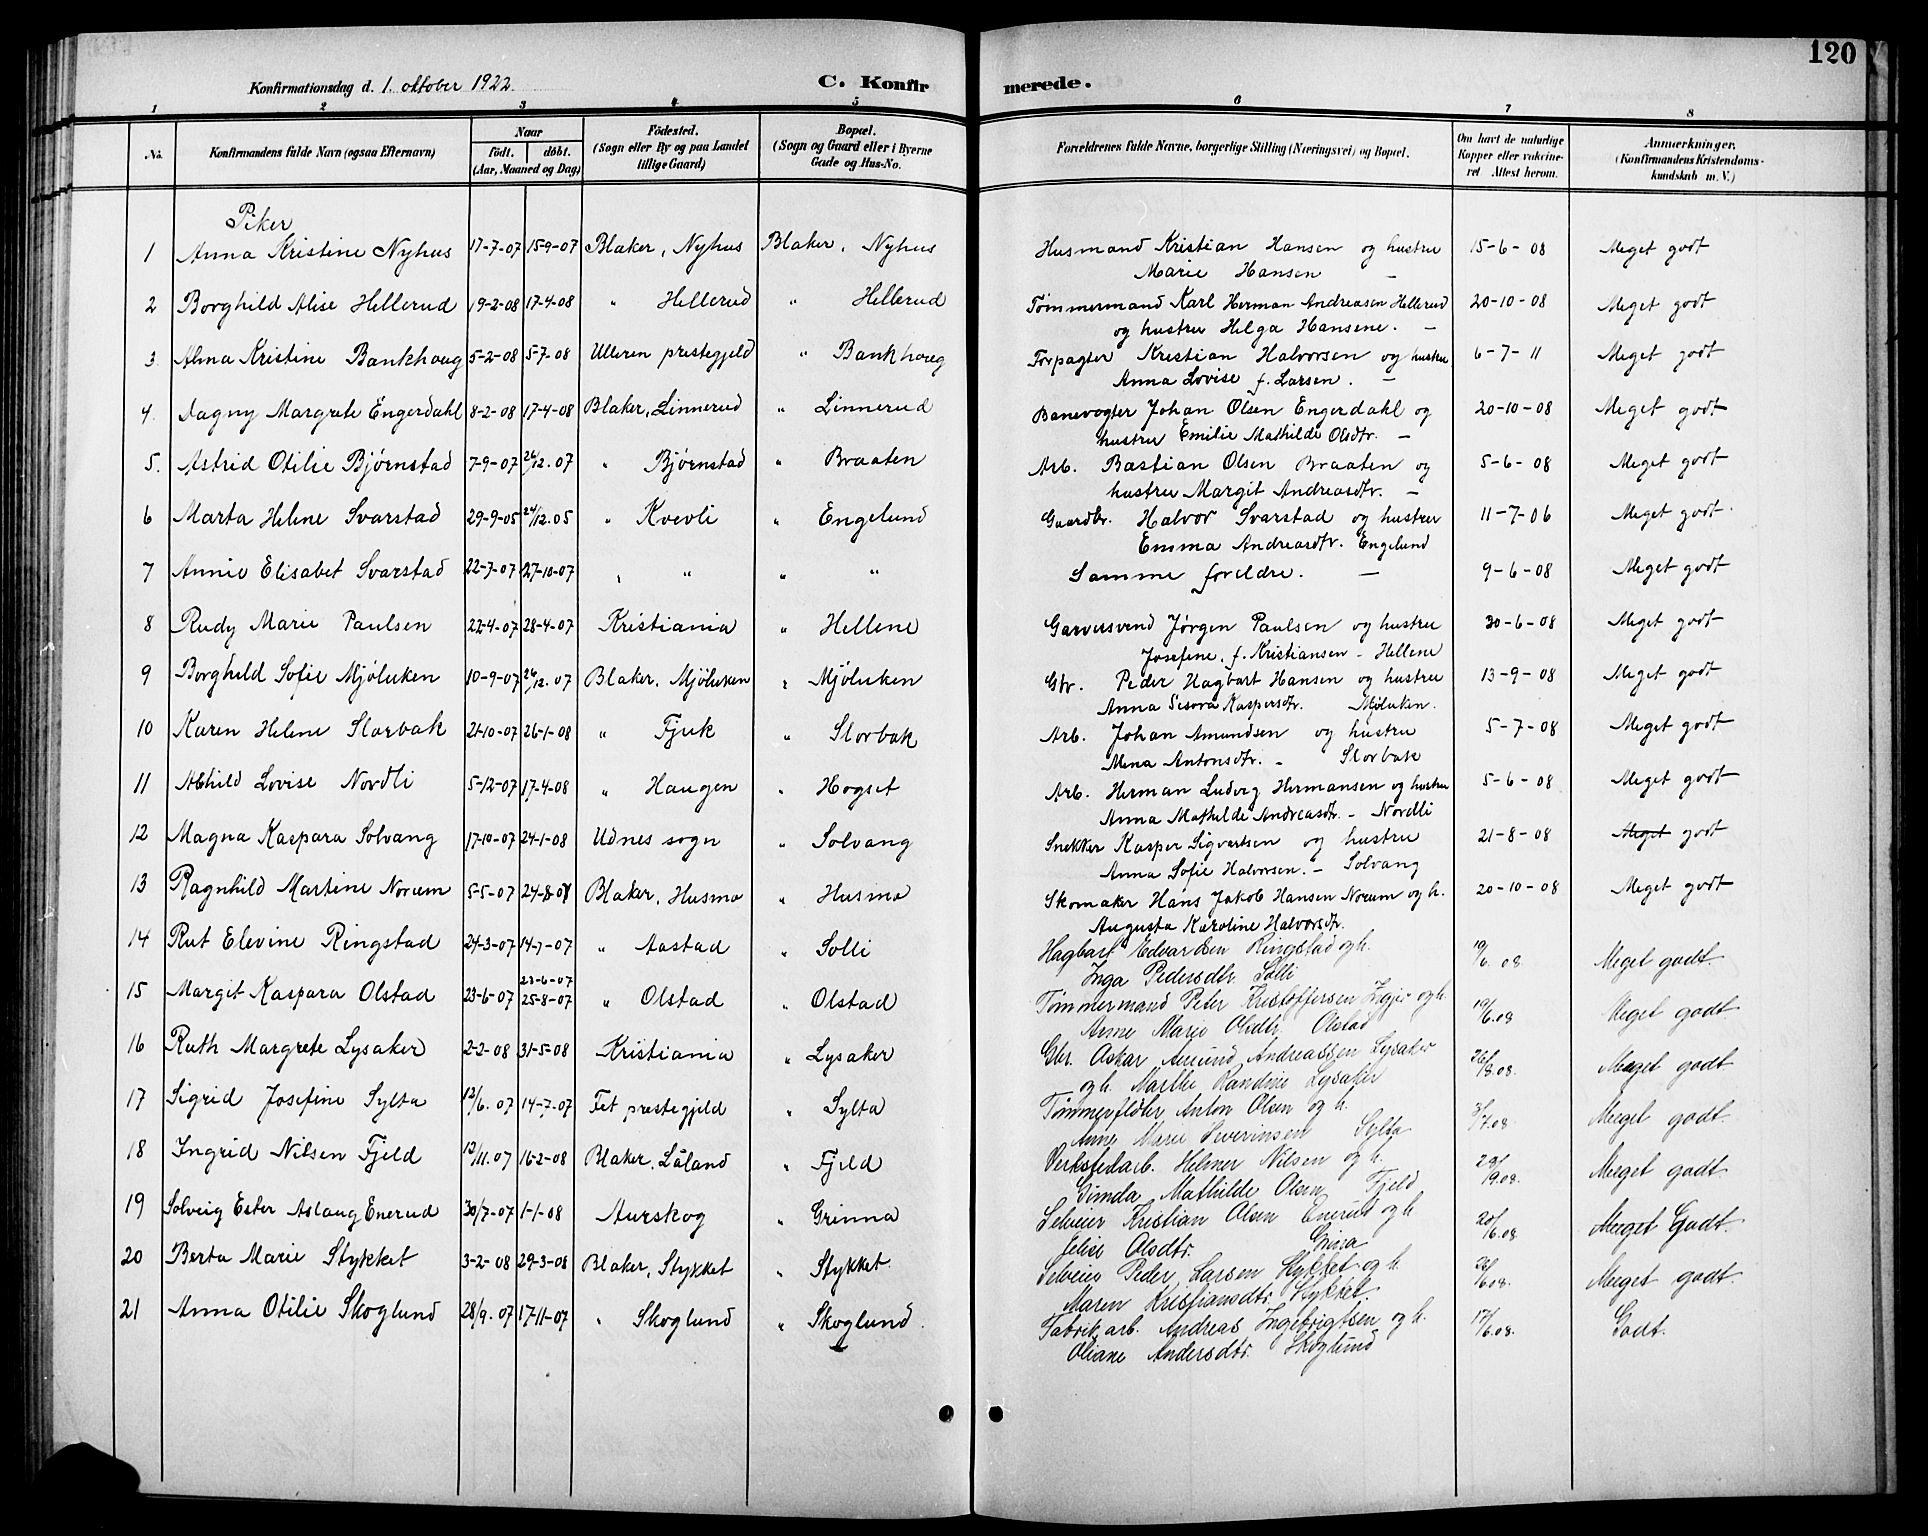 120
Konfirmationsdag d. 1. oktober 1922.
C. Konfir
merede.
1 2 3 4 5 6 7 8
No. Konfirmandens fulde Navn (ogsaa Efternavn) Naar født. døbt. (Aar, Maaned og Dag) Födested. (Sogn eller By og paa Landet tillige Gaard) Bopæl. (Sogn og Gaard eller i Byerne Gade og Hus-No. Forældrenes fulde Navne, borgerlige Stilling (Næringsvei) og Bopæl. Om havt de naturlige Kopper eller vakcineret Attest herom. Anmærkninger. (Konfirmandens Kristendomskundskab m. V.)
Piker
1 Anna Kristine Nyhus 17-7-07 15-9-07 Blaker, Nyhus Blaker, Nyhus Husmand Kristian Hansen og hustru 15-6-08 Meget godt
Marie Hansen —
2 Borghild Alise Hellerud 19-2-08 17-4-08 " Hellerud " Hellerud Tømmermand Karl Herman Andreasen Hellerud 20-10-08 Meget godt
og hustru Helga Hansene. —
3 Alma Kristine Bankhaug 5-2-08 5-7-08 Ulleren prestegjeld " Bankhaug Forpagter Kristian Halvorsen og hustru 6-7-11 Meget godt
Anna Lovise f. Larsen. —
4. Dagny Margrete Engerdahl 8-2-08 17-4-08 Blaker, Linnerud " Linnerud Banevogter Johan Olsen Engerdahl og 20-10-08 Meget godt
hustru Emilie Mathilde Olsdtr. —
5. Astrid Otilie Bjørnstad 7-9-07 26/12.07 " Bjørnstad " Braaten Arb. Bastian Olsen Braaten og 5-6-08 Meget godt
hustru Margit Andreasdtr. —
6 Marta Helene Svarstad 29-9-05 24/12.05 " Kvevli " Engelund Gaardbr. Halvor Svarstad og hustru 11-7-06 Meget godt.
Emma Andreasdtr. Engelund
7 Annie Elisabet Svarstad 22-7-07 27-10-07 " " " " Samme foreldre. — 9-6-08 Meget godt
8 Rudy Marie Paulsen 22-4-07 28-4-07 Kristiania " Hellene Garversvend Jørgen Paulsen og hustru 30-6-08 Meget godt
Josefine, f. Kristiansen - Hellene
9 Borghild Sofie Mjøluken 10-9-07 26/12.07 Blaker, Mjøluken " Mjøluken Gbr. Peder Hagbart Hansen og hustru 13-9-08 Meget godt
Anna Kaspersdtr. Mjøluken.
10 Karen Helene Slorbak 21-10-07 26-1-08 " Fjuk " Slorbak Arb. Johan Amundsen og hustru 5-7-08 Meget godt
Mina Antonsdtr. - Slorbak
11 Lovise Nordli 5-12-07 17-4-08 " Haugen " Hogset Arb. Herman Ludvig Hermansen og hustru 5-6-08 Meget godt
Anna Mathilde Andreasdtr. - Nordli
12 Magna Kaspara Solvang 17-10-07 24-1-08 Udnes sogn " Solvang Snekker Kasper Sigvartsen og hustru 21-8-08 Meget godt
Anna Sofie Halvorsen. - Solvang
13 Ragnhild Martine Norum 5-5-07 24-8-07 Blaker, Husmo " Husmo Skomaker Hans Jakob Hansen Norum og h. 20-10-08 Meget godt
Augusta Karoline Halvorsdtr.
14 Rut Elevine Ringstad 24-3-07 14-7-07 " Aastad " Solli Hagbart Edvardsen Ringstad og h. 19/6.08 Meget godt.
Inga Pedersdtr. Solli
23-6-07
15 Margit Kaspara Olstad 23-6-07 25-8-07 " Olstad " Olstad Tømmermand Peter Kristoffersen og h. 19/6.08 Meget godt.
Anne Marie Olsdtr. Olstad
16 Ruth Margrete Lysaker 2-2-08 31-5-08 Kristiania " Lysaker Gbr. Oskar Amund Andreassen Lysaker 26/8.08. Meget godt
og h. Marthe Randine Lysaker
17 Sigrid Josefine Sylta 12/6.07 14-7-07 Fet prestegjeld " Sylta Tømmerfløter Anton Olsen og h. 3/7.08. Meget godt.
Anne Marie Severinsen Sylta
18 Ingrid Nilsen Fjeld 12/11.07 16-2-08 Blaker, Låland " Fjeld Verkstedarb. Helmer Nilsen og h. 29/9.08. Meget godt.
Gunda Mathilde Olsen Fjeld
19 Solveig Ester Aslaug Enerud 30/7-07 1-1-08 Aurskog " Grinna Selveier Kristian Olsen Enerud og h. 20/6.08. Meget Godt.
Jelise Olsdtr. Grina
20 Berta Marie Stykket 3-2-08 29-3-08 Blaker, Stykket " Stykket. Selveier Peder Larsen Stykket og h. /6 08. Meget godt.
Maren Kristiansdtr. Stykket.
21 Anna Otilie Skoglund 28/9.07 17-11-07 " Skoglund " Skoglund. Fabrik arb. Andreas Ingebrigtsen og h. 17/6.08. Godt.
Oliane Andersdtr. Skoglund